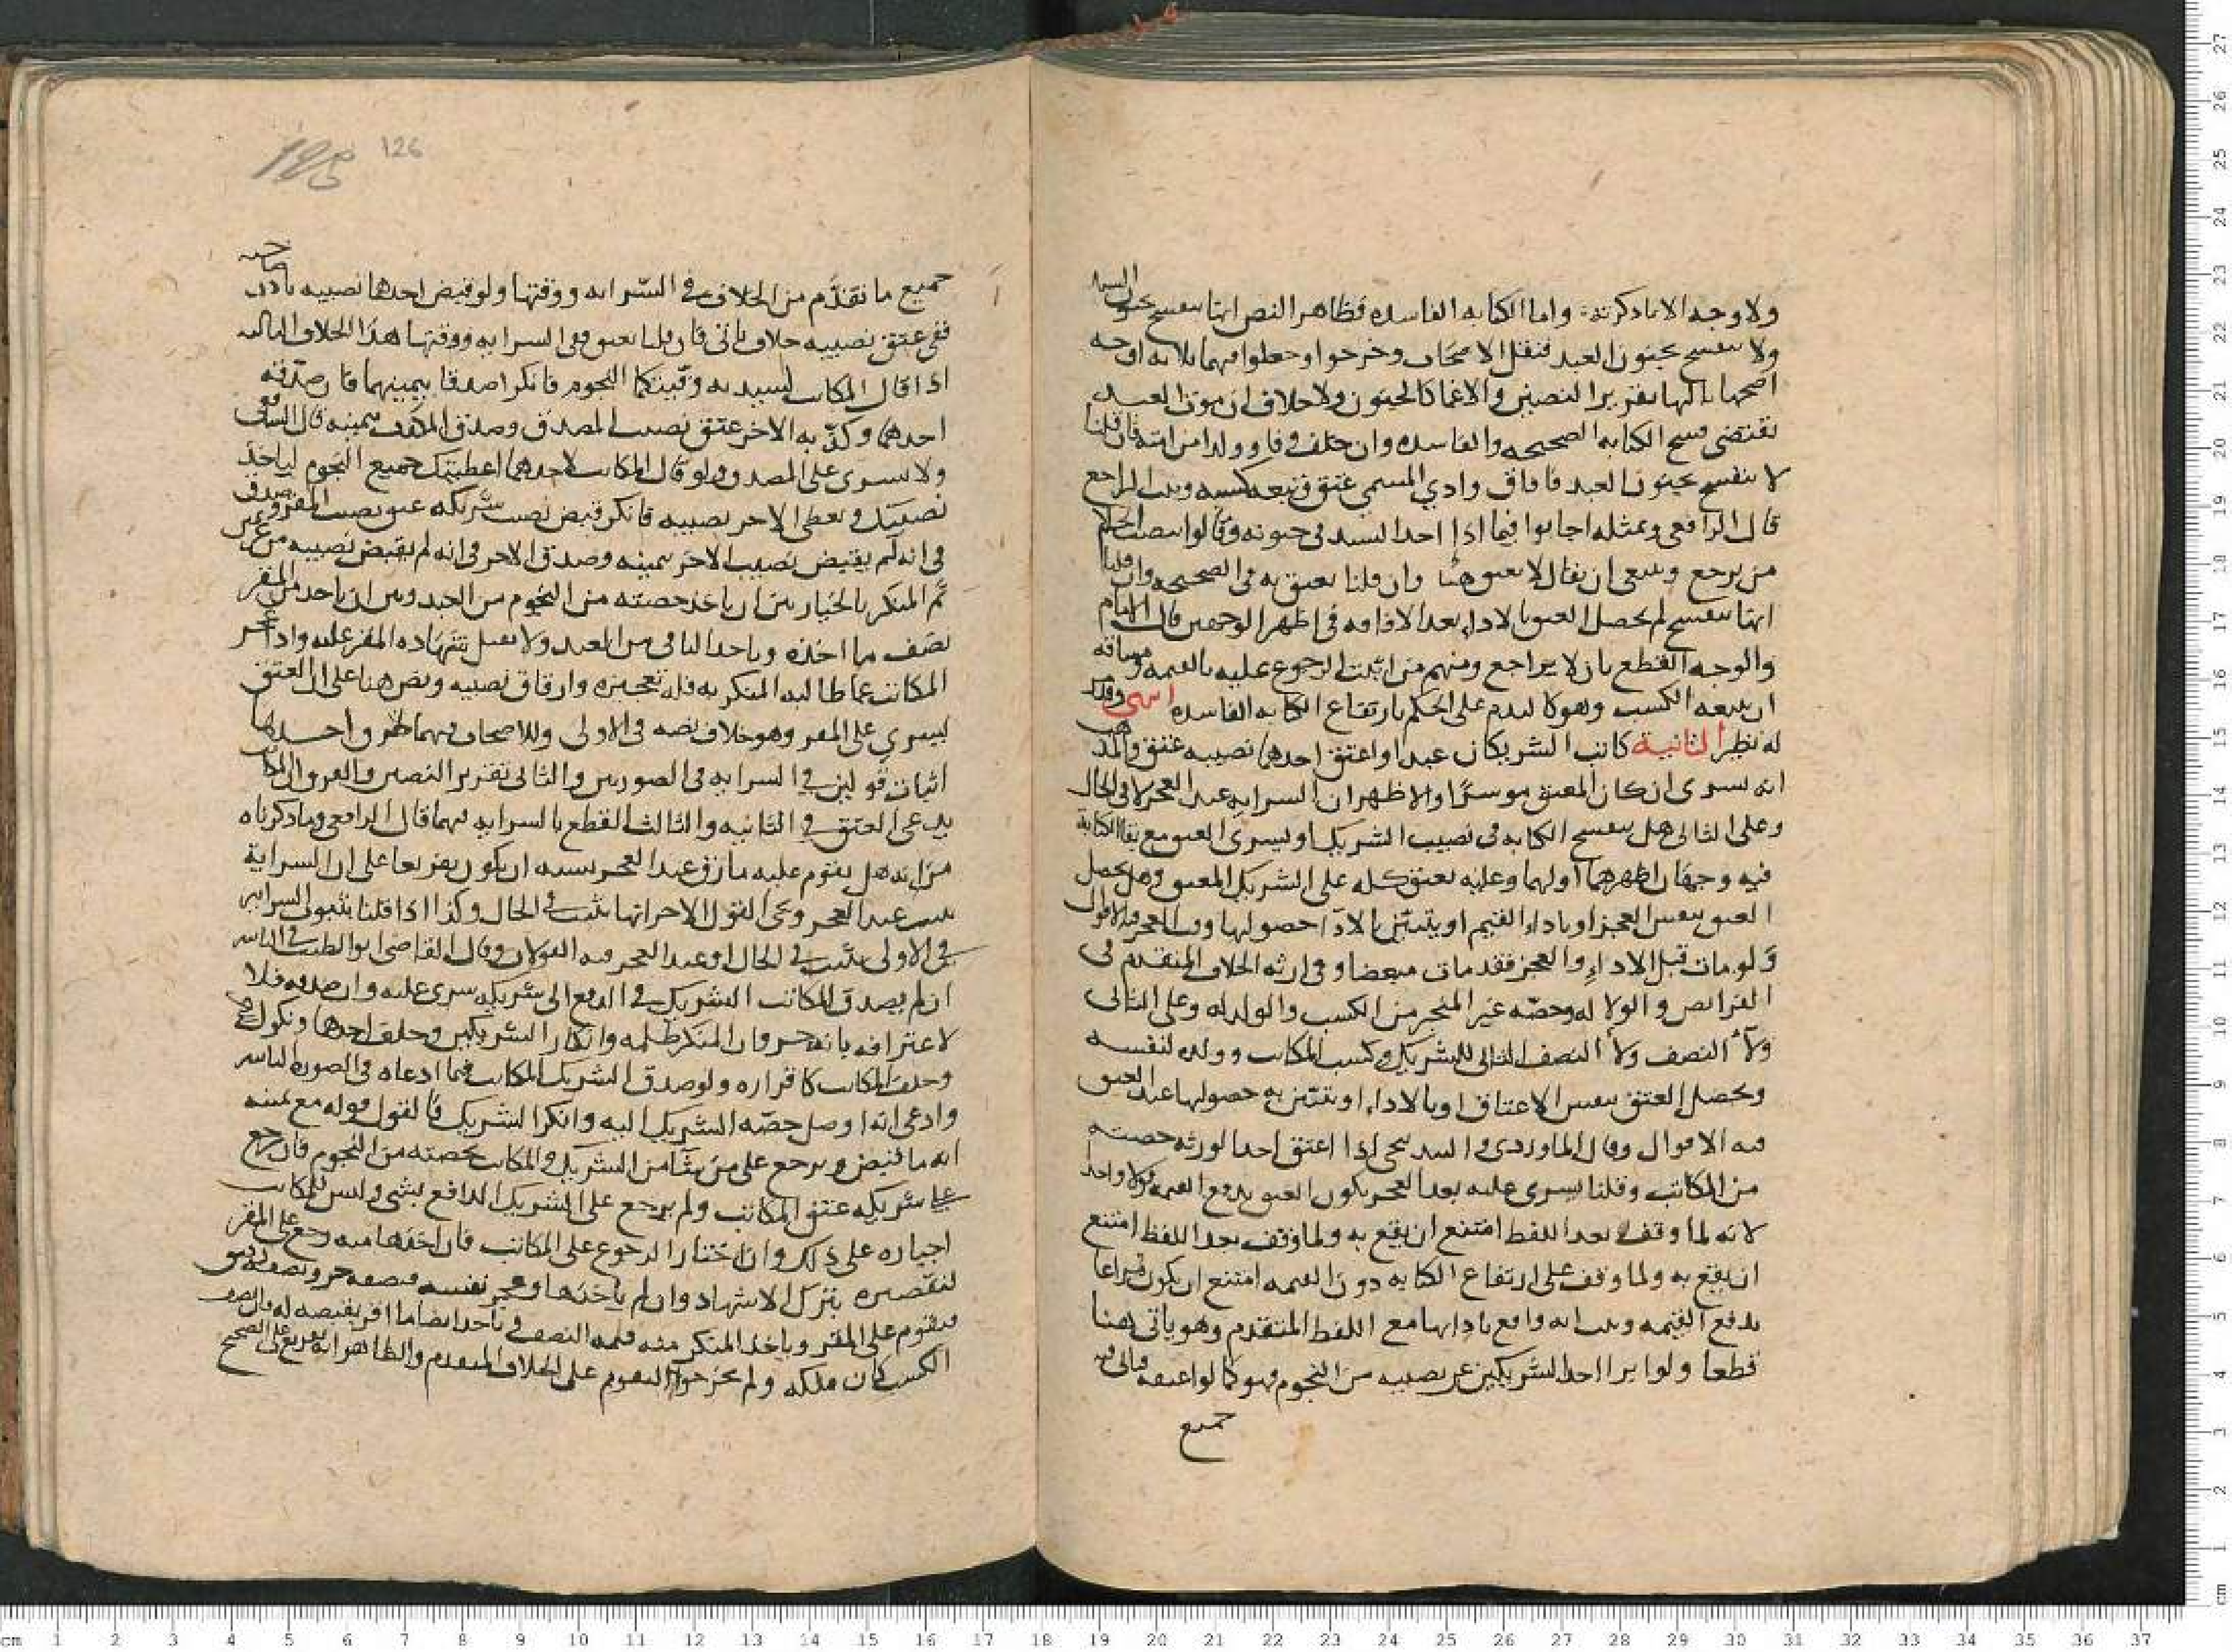 ولا وجه الا ما ذكرته واما الكتابه الفاسده فظاهر النص انها تنفسخ بجنون السيد
ولا تنفسخ بجنون العبد فنقل الاصحاب وخرجوا وجعلوا فيهما ثلاثه اوجه
اصحها ثالثها تقرير النصين والاغما كالجنون ولا خلاف ان موت العبد
تقتضى فسخ الكتابه الصحيحه والفاسده وان خلف وفا وولدا من امته فان قلنا
لا تنفسخ بجنون العبد فافاق وادي المسمى عتق وتبعه كسبه وثبت التراجع
قال الرافعي وبمثله اجابوا فيما اذا اخذ السيد في جنونه وقالوا بنصب الحاكم
من يرجع وينبغى ان يقال لا يعتق هنا وان قلنا يعتق به في الصحيحه وان قلنا
انها تنفسخ لم يحصل العتق بالاداء بعد الافاقه في اظهر الوجهين قال الامام
والوجه القطع بان لا يراجع ومنهم من اثبت الرجوع عليه بالقيمه ومساقه
ان يتبعه الكسب وهو لا يندم على الحكم بارتفاع الكتابه الفاسده انتهى وقد
له نظر الثانية كاتب الشريكان عبدا واعتق احدهما نصيبه عتق والمذهب
انه يسرى ان كان المعتق موسرا والاظهر ان السرايه عند العجز لا في الحال
وعلى الثانى هل تنفسخ الكتابه في نصيب الشريك او يسرى العتق مع بقا الكتابة
فيه وجهان اظهرهما اولهما وعليه يعتق كله على الشريك المعتق وهل يحصل
العتق بنفس العجز او باداء القيم او يتبين بالاداء حصولها وقت العجز فيه الاقوال
ولو مات قبل الاداء والعجز فقد مات مبعضا وفي ارثه الخلاف المتقدم في
الفرائض والولا له وحصه غير المنجز من الكسب والولد له وعلى الثانى
ولاء النصف ولاء النصف الثانى للشريك وكسب المكاتب وولده لنفسه
ويحصل العتق بنفس الاعتاق او بالاداء او يتبين به حصولها عند العتق
فيه الاقوال وقال الماوردي والبندنيجى اذا اعتق احد الورثه حصته
من المكاتب وقلنا يسرى عليه بعد العجز يكون العتق بدفع القيمه قولا واحدا
لانه لما وقف بعد اللفظ امتنع ان يقع به ولما وقف بعد اللفظ امتنع
ان يقع به ولما وقف على ارتفاع الكتابه دون القيمه امتنع ان يكون مراعا
بدفع القيمه وثبت انه واقع بادايها مع اللفظ المتقدم وهو ياتى هنا
قطعا ولو ابرا احد الشريكين عن نصيبه من النجوم فهو كما لو اعتقه فياتى فيه
جميع
126
جميع ما تقدم من الخلاف في السرايه ووقتها ولو قبض احدهما نصيبه باذن صاحبه
ففي عتق نصيبه خلاف ياتى فان قلنا يعتق ففى السرايه ووقتها هذا الخلاف الثالثه
اذا قال المكاتب لسيديه وفيتكما النجوم فانكرا صدقا بيمينهما فان صدقه
احدهما وكذبه الاخر عتق نصيب المصدق وصدق المكذب بيمينه قال الشافعي
ولا يسرى على المصدق ولو قال المكاتب لاحدهما اعطيتك جميع النجوم لتاخذ
نصيبك وتعطى الاخر نصيبه فانكر قبض نصيب شريكه عتق نصيب المقر وصدق
في انه لم يقبض نصيب الاخر بيمينه وصدق الاخر في انه لم يقبض نصيبه من غير
ثم المنكر بالخيار بين ان ياخذ حصته من النجوم من العبد وبين ان ياخذ من المقر
نصف ما اخذه وياخذ الباقى من العبد ولا تقبل شهاده المقر عليه واذا عجز
المكاتب عما طالبه المنكر به فله تعجيزه وارقاق نصيبه ونص هنا على ان العتق
ليسري على المقر وهو خلاف نصه في الاولى وللاصحاب فيهما طرق احدها
اثبات قولين في السرايه في الصورتين والثانى تقرير النصين والفرق ان المكاتب
يدعى العتق في الثانيه والثالث القطع بالسرايه فيهما قال الرافعي وما ذكرناه
من انه هل يقوم عليه ما رق عند العجز يشبه ان يكون تفريعا على ان السراية
تثبت عند العجز ويجي القول الاخر انها تثبت في الحال وكذا اذا قلنا بثبوت السرايه
في الاولى تثبت في الحال او عند العجز فيه القولان وقال القاضى ابو الطيب في الثانيه
ان لم يصدق المكاتب الشريك في الدفع الى شريكه سرى عليه وان صدقه فلا
لاعترافه بانه حر وان المنكر ظلمه وانكار الشريكين وحلف احدهما ونكول
وحلف المكاتب كاقراره ولو صدق الشريك المكاتب فيما ادعاه في الصوره الثانيه
وادعى انه اوصل حصه الشريك اليه وانكر الشريك فالقول قوله مع يمينه
انه ما قبض ويرجع على من شا من الشريك والمكاتب بحصته من النجوم فان رجع
على شريكه عتق المكاتب ولم يرجع على الشريك الدافع بشى وليس للمكاتب
اجباره على ذلك وان اختار الرجوع على المكاتب فان اخذها منه رجع على المقر
لتقصيره بترك الاشهاد وان لم ياخذها وعجز نفسه فنصفه حر ونصفه رقيق
فيقوم على المقر وياخذ المنكر منه قيمه النصف وياخذ ايضا ما اقر بقبضه له
الكسب كان ملكه ولم يخرجوا التقويم على الخلاف المتقدم والظاهر انه تفريع على الصحيح